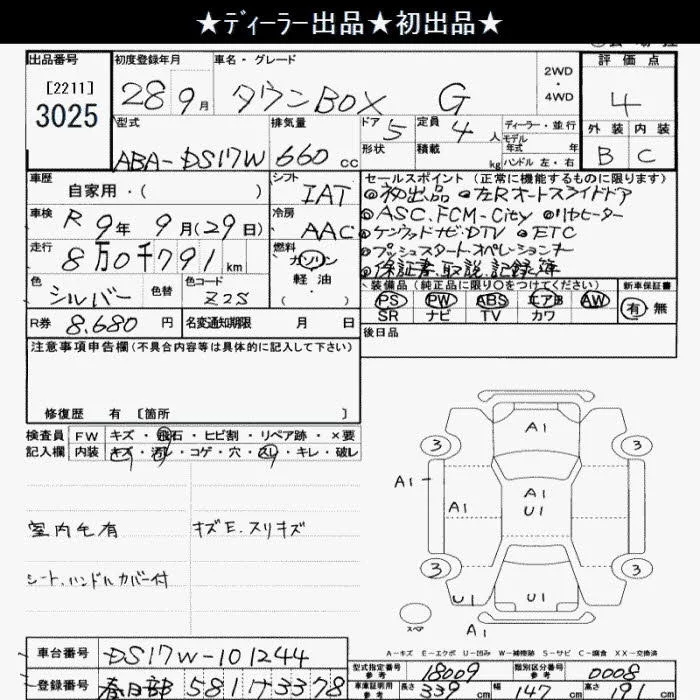 ★ディーラー出品★初出品★
出品番号
[2211]
3025
初度登録年月
28 9月
車名・グレード
タウンBOX G
2WD
・
4WD
評価点
4
外装 内装
B C
型式
ABA-DS17W
排気量
660 cc
ドア 5
定員 4 人
形状
積載 kg
ディーラー・並行
モデル年式 年
ハンドル 左・右
車歴
自家用・( )
シフト
IAT
車検
R 9年 9月(29日)
冷房
AAC
走行
8万0千791 km
燃料
ガソリン
軽油
色
シルバー
色替
色コード
Z2S
R券 8,680 円
名変通知期限 月 日
セールスポイント (正常に機能するものに限ります)
◎初出品 ◎左Rオートスライドドア
◎ASC.FCM-City ◎リヤヒーター
◎ケンウッドナビ・DTV ◎ETC
◎プッシュスタート・オペレーションキー
◎保証書、取説、記録簿
装備品(純正品に限り○をつけてください)
新車保証書
PS PW ABS エアB AW
有 無
SR ナビ TV カワ
後日品
注意事項申告欄(不具合内容等は具体的に記入して下さい)
修復歴 有 [箇所 ]
検査員
記入欄
FW キズ・飛石・ヒビ割・リペア跡・×要
内装 キズ・汚レ・コゲ・穴・スレ・キレ・破レ
室内乇有
キズE.スリキズ
シート、ハンドルカバー付
A1
3 3
A1
A1
A1
U1
3 3
U1
U1
スペア
A1
A-キズ E-エクボ U-凹み W-補修跡 S-サビ C-腐食 XX-交換済
車台番号
DS17W-101244
登録番号
春日部 581 ワ 3378
型式指定番号
参考
18009
類別区分番号
参考
0008
車庫証明用
参考
長さ 339 cm
幅 147 cm
高さ
cm